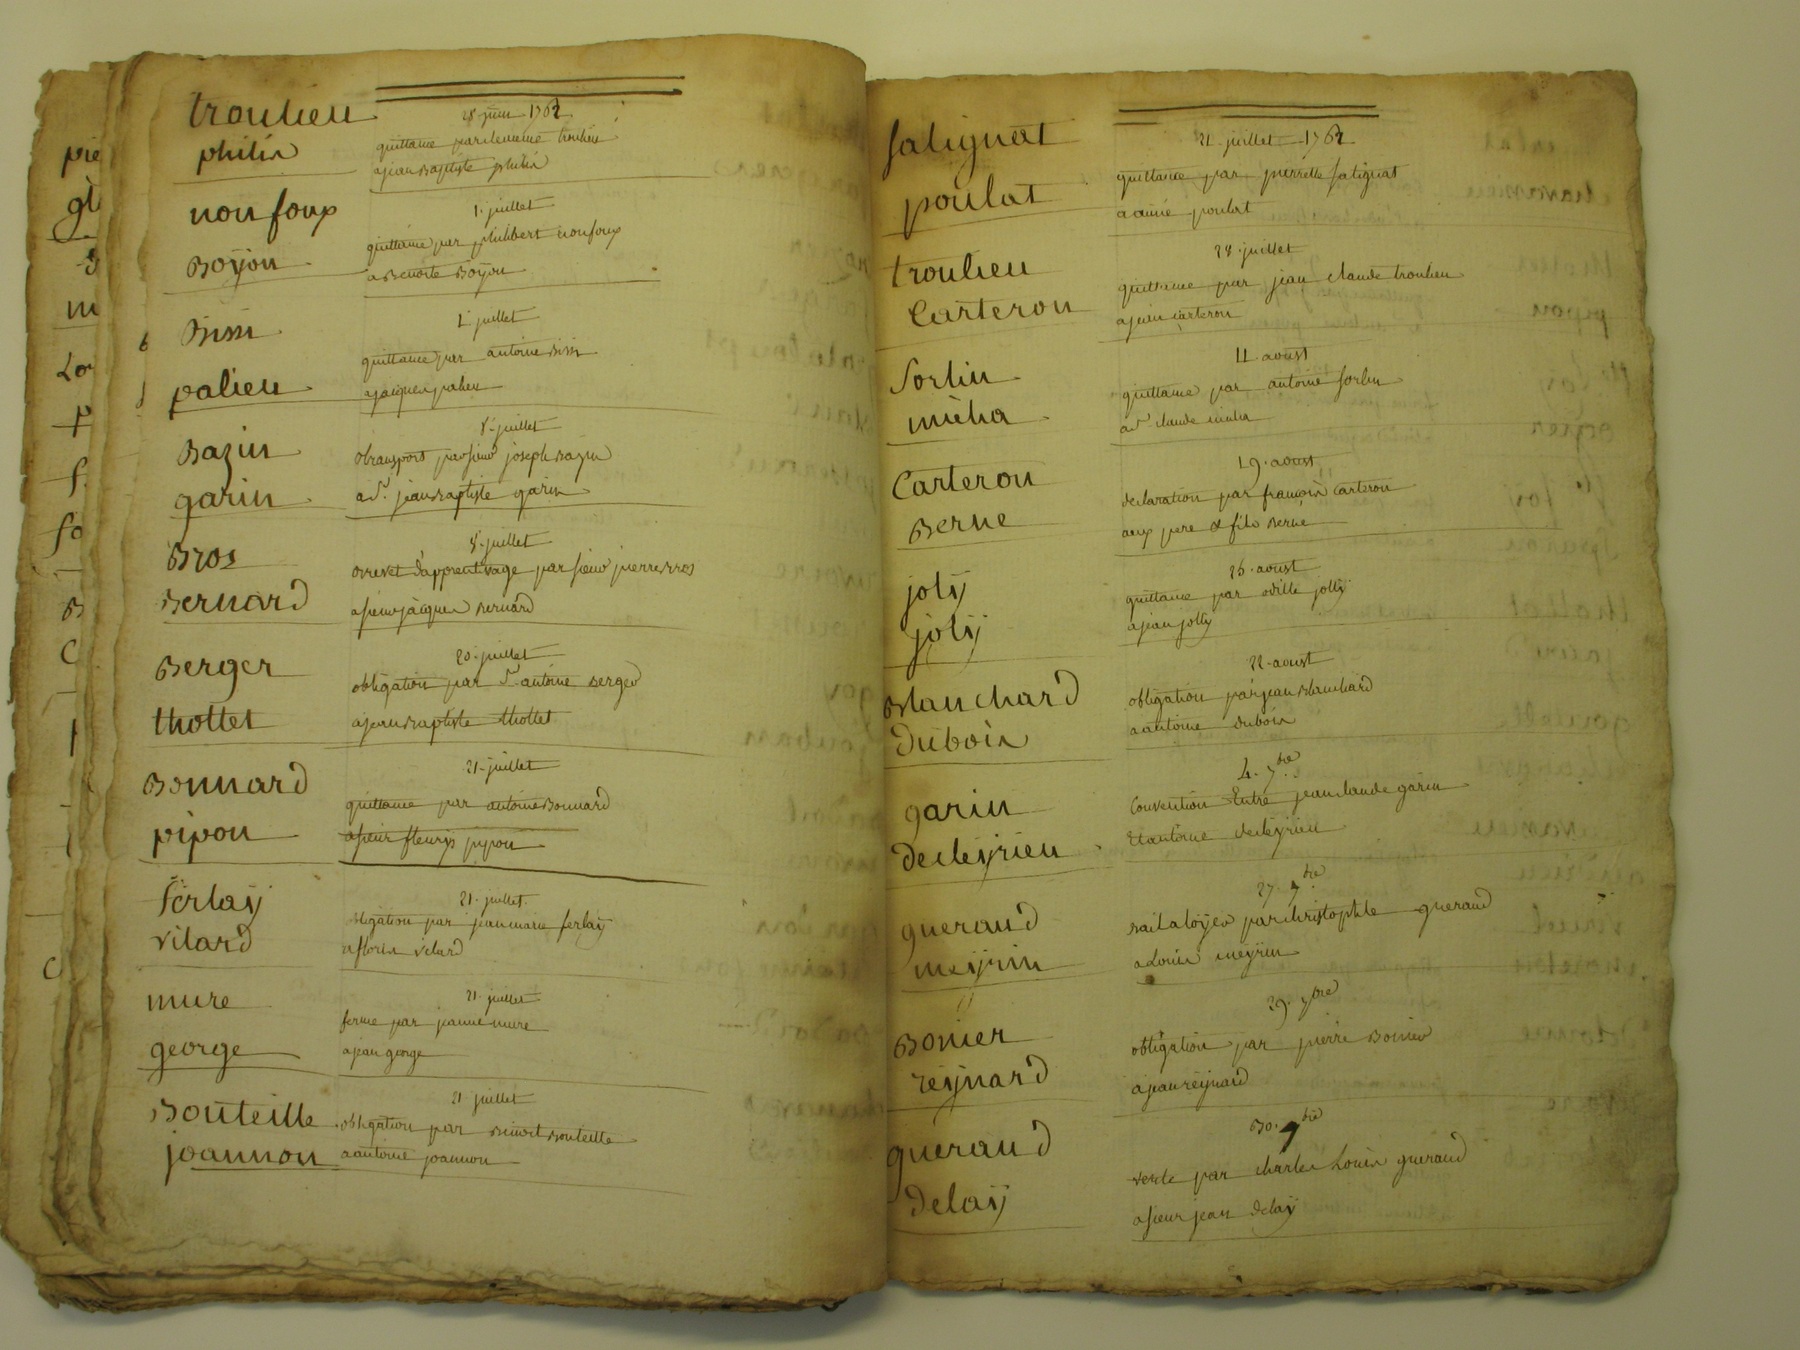 troulieu
philis
28 juin 1762
quittance par troulieu
a jean Baptiste philis
nonfoup
Boÿon
1. juillet
quittance par philibert nonfoup
a Benoite Boÿon
Bissi
palieu
juillet
quittance par antoine Bissi
a jacques palieu
Bazin
garin
8 juillet
par sieur joseph Bazin
a Sr. jean Baptiste garin
Bros
Bernard
8 juillet
Brevet d'apprentisage par sieur pierre Bros
a sieur jacques Bernard
Berger
thottet
20 juillet
obligation par Sr antoine Berger
a jean Baptiste thottet
Bonnard
pipon
21 juillet
quittance par antoine Bonnard
a sieur fleury pipon
ferlaÿ
vilard
21 juillet
obligation par jean marie ferlaÿ
a floris vilard
mure
george
21 juillet
ferme par jeanne mure
a jean george
Bouteille
joannon
21 juillet
obligation par Benoit Bouteille
a antoine joannon
salignat
poulat
21 juillet 1762
quittance par pierrette salignat
a aimé poulat
troulieu
Carteron
28 juillet
quittance par jean claude troulieu
a jean carteron
sorlin
micha
11 aoust
quittance par antoine sorlin
a Sr claude micha
Carteron
Berne
19. aoust
declaration par françois carteron
aux pere & fils Berne
jolÿ
jolÿ
aoust
quittance par jollÿ
a jean jollÿ
Blanchard
duboin
22 aoust
obligation par jean Blanchard
a antoine duboin
garin
decleÿrieu
4. 7bre
Convention Entre jean claude garin
Et antoine decleÿrieu
gueraud
meÿrin
27. 7bre
Bail a loÿer par christophle gueraud
a Louis meÿrin
Bonier
reÿnard
29. 7bre
obligation par pierre Bonier
a jean reÿnard
gueraud
delaÿ
30. 7bre
vente par charles Louis gueraud
a sieur jean delaÿ